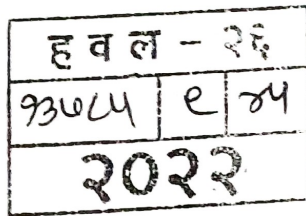 ह व ल - २६
१३७८५ ९
२०२२